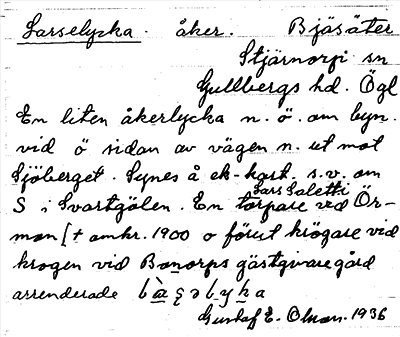 Larselycka. åker. Bjäsäter
Stjärnorps sn
Gullbergs hd. Ögl
En liten åkerlycka n. ö. om byn.
vid ö sidan av vägen n. ut mot
Sjöberget. Synes å ek-kart. s.v. om
Lars Saletti
S i Svartgölen. En torpare ved Ör-
mon [† omkr. 1900 o förut krögare vid
krogen vid Bonorps gästgivaregård
arrenderade
Gustaf E. Olsson. 1936